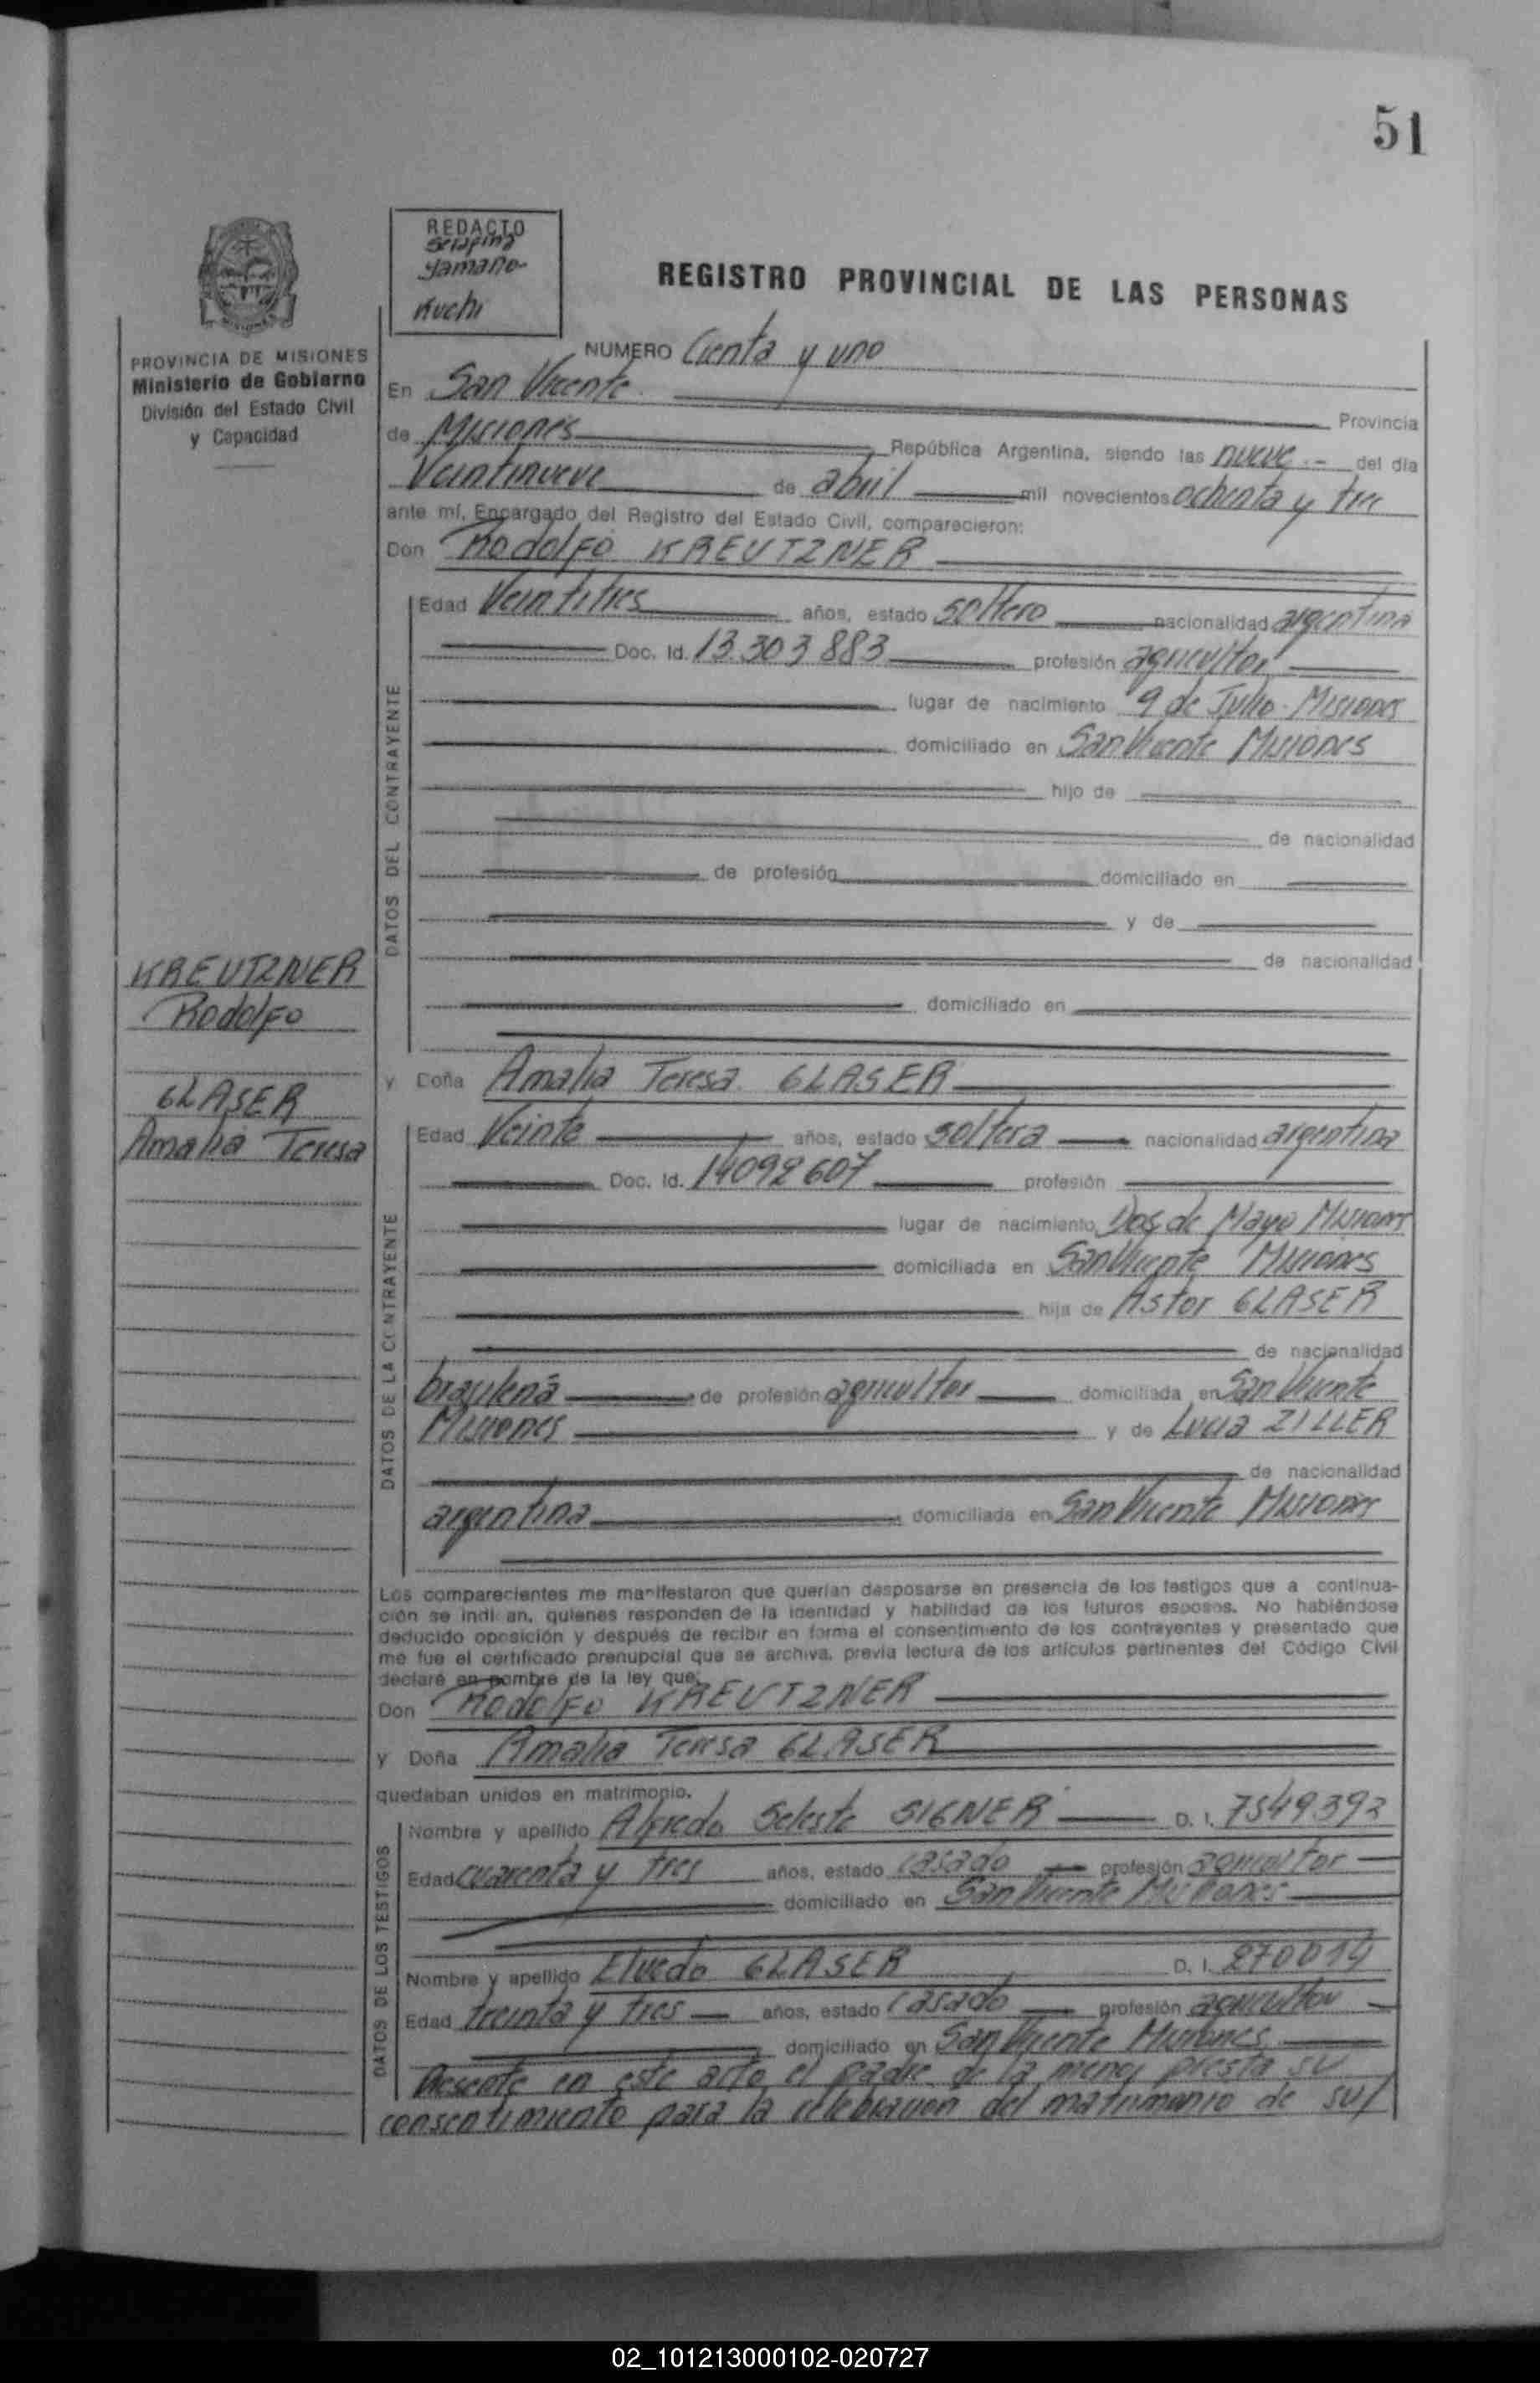 51
REDACTO
Serafina
Yamano-
Kuchi
REGISTRO PROVINCIAL DE LAS PERSONAS
PROVINCIA DE MISIONES
Ministerio de Gobierno
División del Estado Civil
y Capacidad
NUMERO Cienta y uno
En San Vicente Provincia
de Misiones República Argentina, siendo las nueve del día
Veintinueve de abril mil novecientos ochenta y tres
ante mí, Encargado del Registro del Estado Civil, comparecieron:
Don Rodolfo KREUTZNER
DATOS DEL CONTRAYENTE
Edad Veintitres años, estado soltero nacionalidad argentina
Doc. Id. 13.303 883 profesión agricultor
lugar de nacimiento 9 de Julio - Misiones
domiciliado en San Vicente Misiones
hijo de
de nacionalidad
de profesión domiciliado en
y de
de nacionalidad
domiciliado en
KREUTZNER
Rodolfo
GLASER
Amalia Teresa
y Doña Amalia Teresa GLASER
DATOS DE LA CONTRAYENTE
Edad Veinte años, estado soltera nacionalidad argentina
Doc. Id. 14092607 profesión
lugar de nacimiento Dos de Mayo Misiones
domiciliada en San Vicente Misiones
hija de Astor GLASER
de nacionalidad
brasilena de profesión agricultor domiciliada en San Vicente
Misiones y de Lucia ZILLER
de nacionalidad
argentina domiciliada en San Vicente Misiones
Los comparecientes me manifestaron que querían desposarse en presencia de los testigos que a continua-
ción se indi an, quienes responden de la identidad y habilidad de los futuros esposos. No habiéndose
deducido oposición y después de recibir en forma el consentimiento de los contrayentes y presentado que
me fue el certificado prenupcial que se archiva, previa lectura de los artículos pertinentes del Código Civil
declaré en nombre de la ley que:
Don Rodolfo KREUTZNER
y Doña Amalia Teresa GLASER
quedaban unidos en matrimonio.
DATOS DE LOS TESTIGOS
Nombre y apellido Alfredo Seleste SIGNER D. I. 7549392
Edad cuarenta y tres años, estado casado profesión agricultor
domiciliado en San Vicente Misiones
Nombre y apellido Elvedo GLASER D. I. 270019
Edad treinta y tres años, estado casado profesión agricultor
domiciliado en San Vicente Misiones
Presente en este acto el padre de la menor presta su
consentimiento para la celebracion del matrimonio de su/
02_101213000102-020727